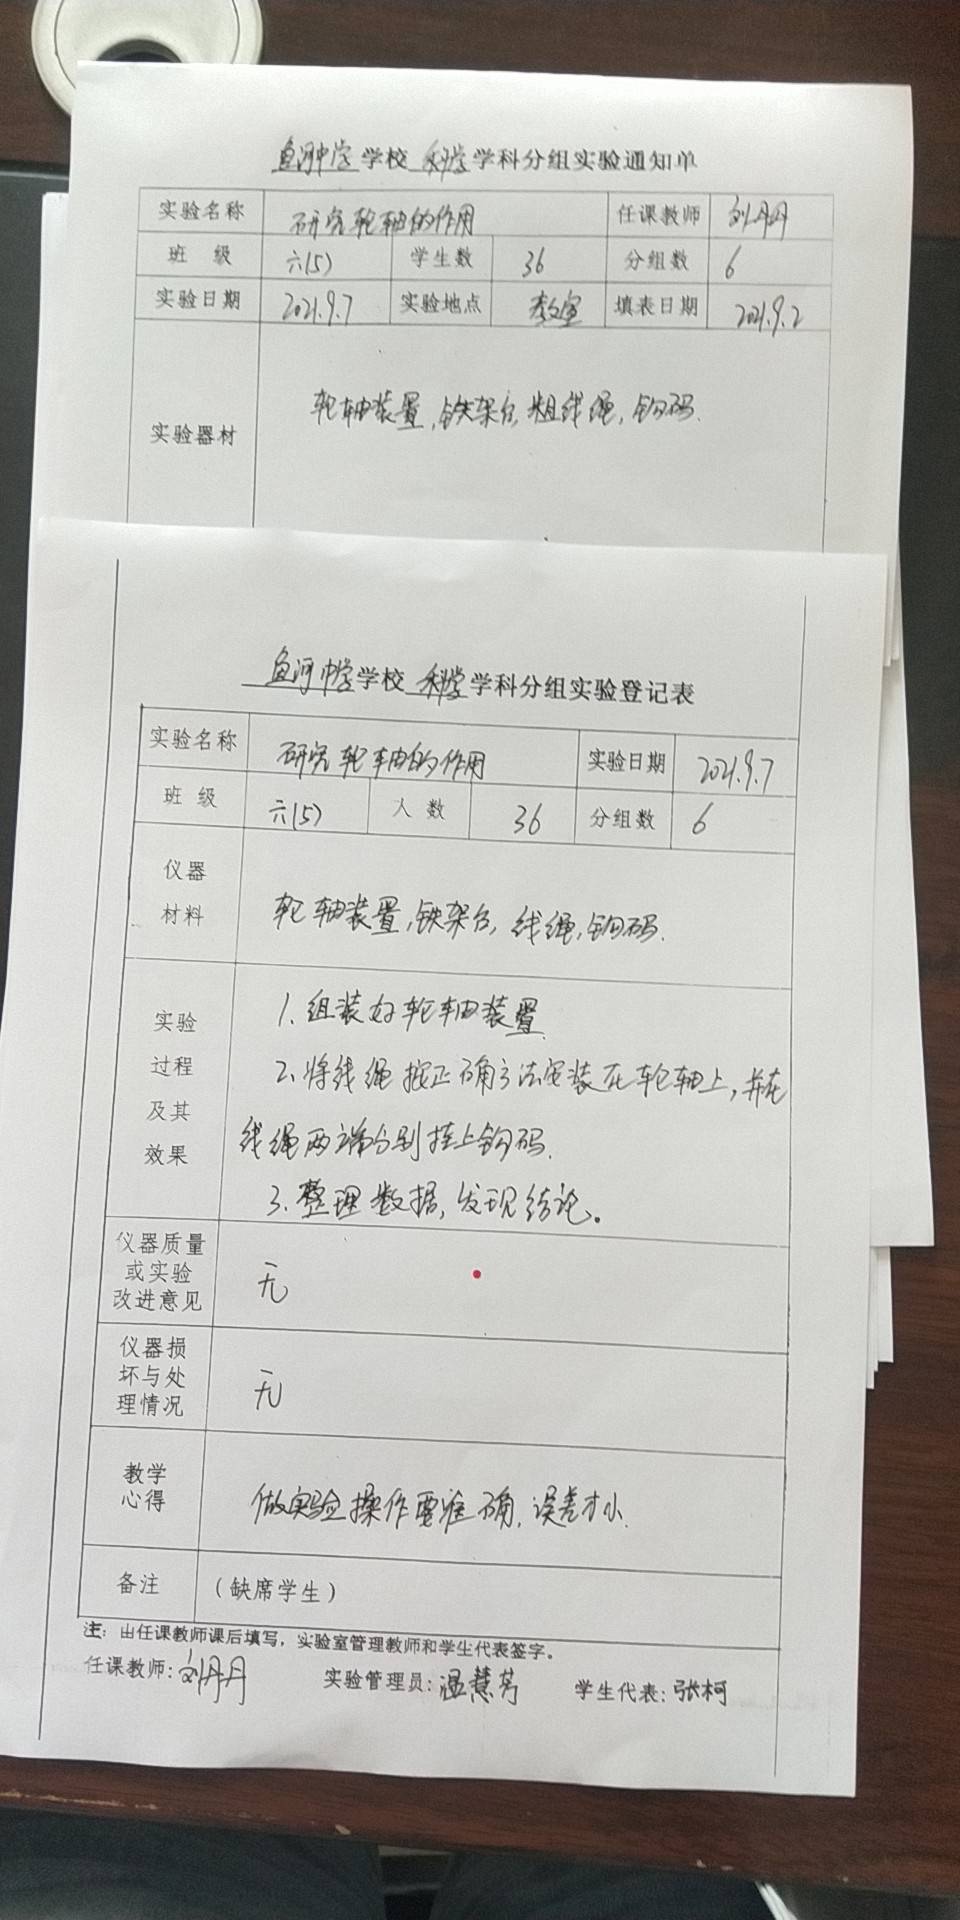 鱼河中学学校 科学学科分组实验通知单
实验名称 研究轮轴的作用 任课教师 刘丹丹
班 级 六(5) 学生数 36 分组数 6
实验日期 2021.9.7 实验地点 教室 填表日期 2021.9.2
实验器材 轮轴装置,铁架台,粗线绳,钩码.
鱼河中学学校 科学学科分组实验登记表
实验名称 研究轮轴的作用 实验日期 2021.9.7
班 级 六(5) 人 数 36 分组数 6
仪器
材料 轮轴装置,铁架台,线绳,钩码.
实验
过程
及其
效果
1.组装好轮轴装置.
2.将线绳按正确方法安装在轮轴上,并在
线绳两端分别挂上钩码.
3.整理数据,发现结论。
仪器质量
或实验
改进意见 无
仪器损
坏与处
理情况 无
教学
心得 做实验操作要准确,误差才小.
备注 (缺席学生)
注:由任课教师课后填写,实验室管理教师和学生代表签字。
任课教师:刘丹丹 实验管理员:温慧芳 学生代表:张柯